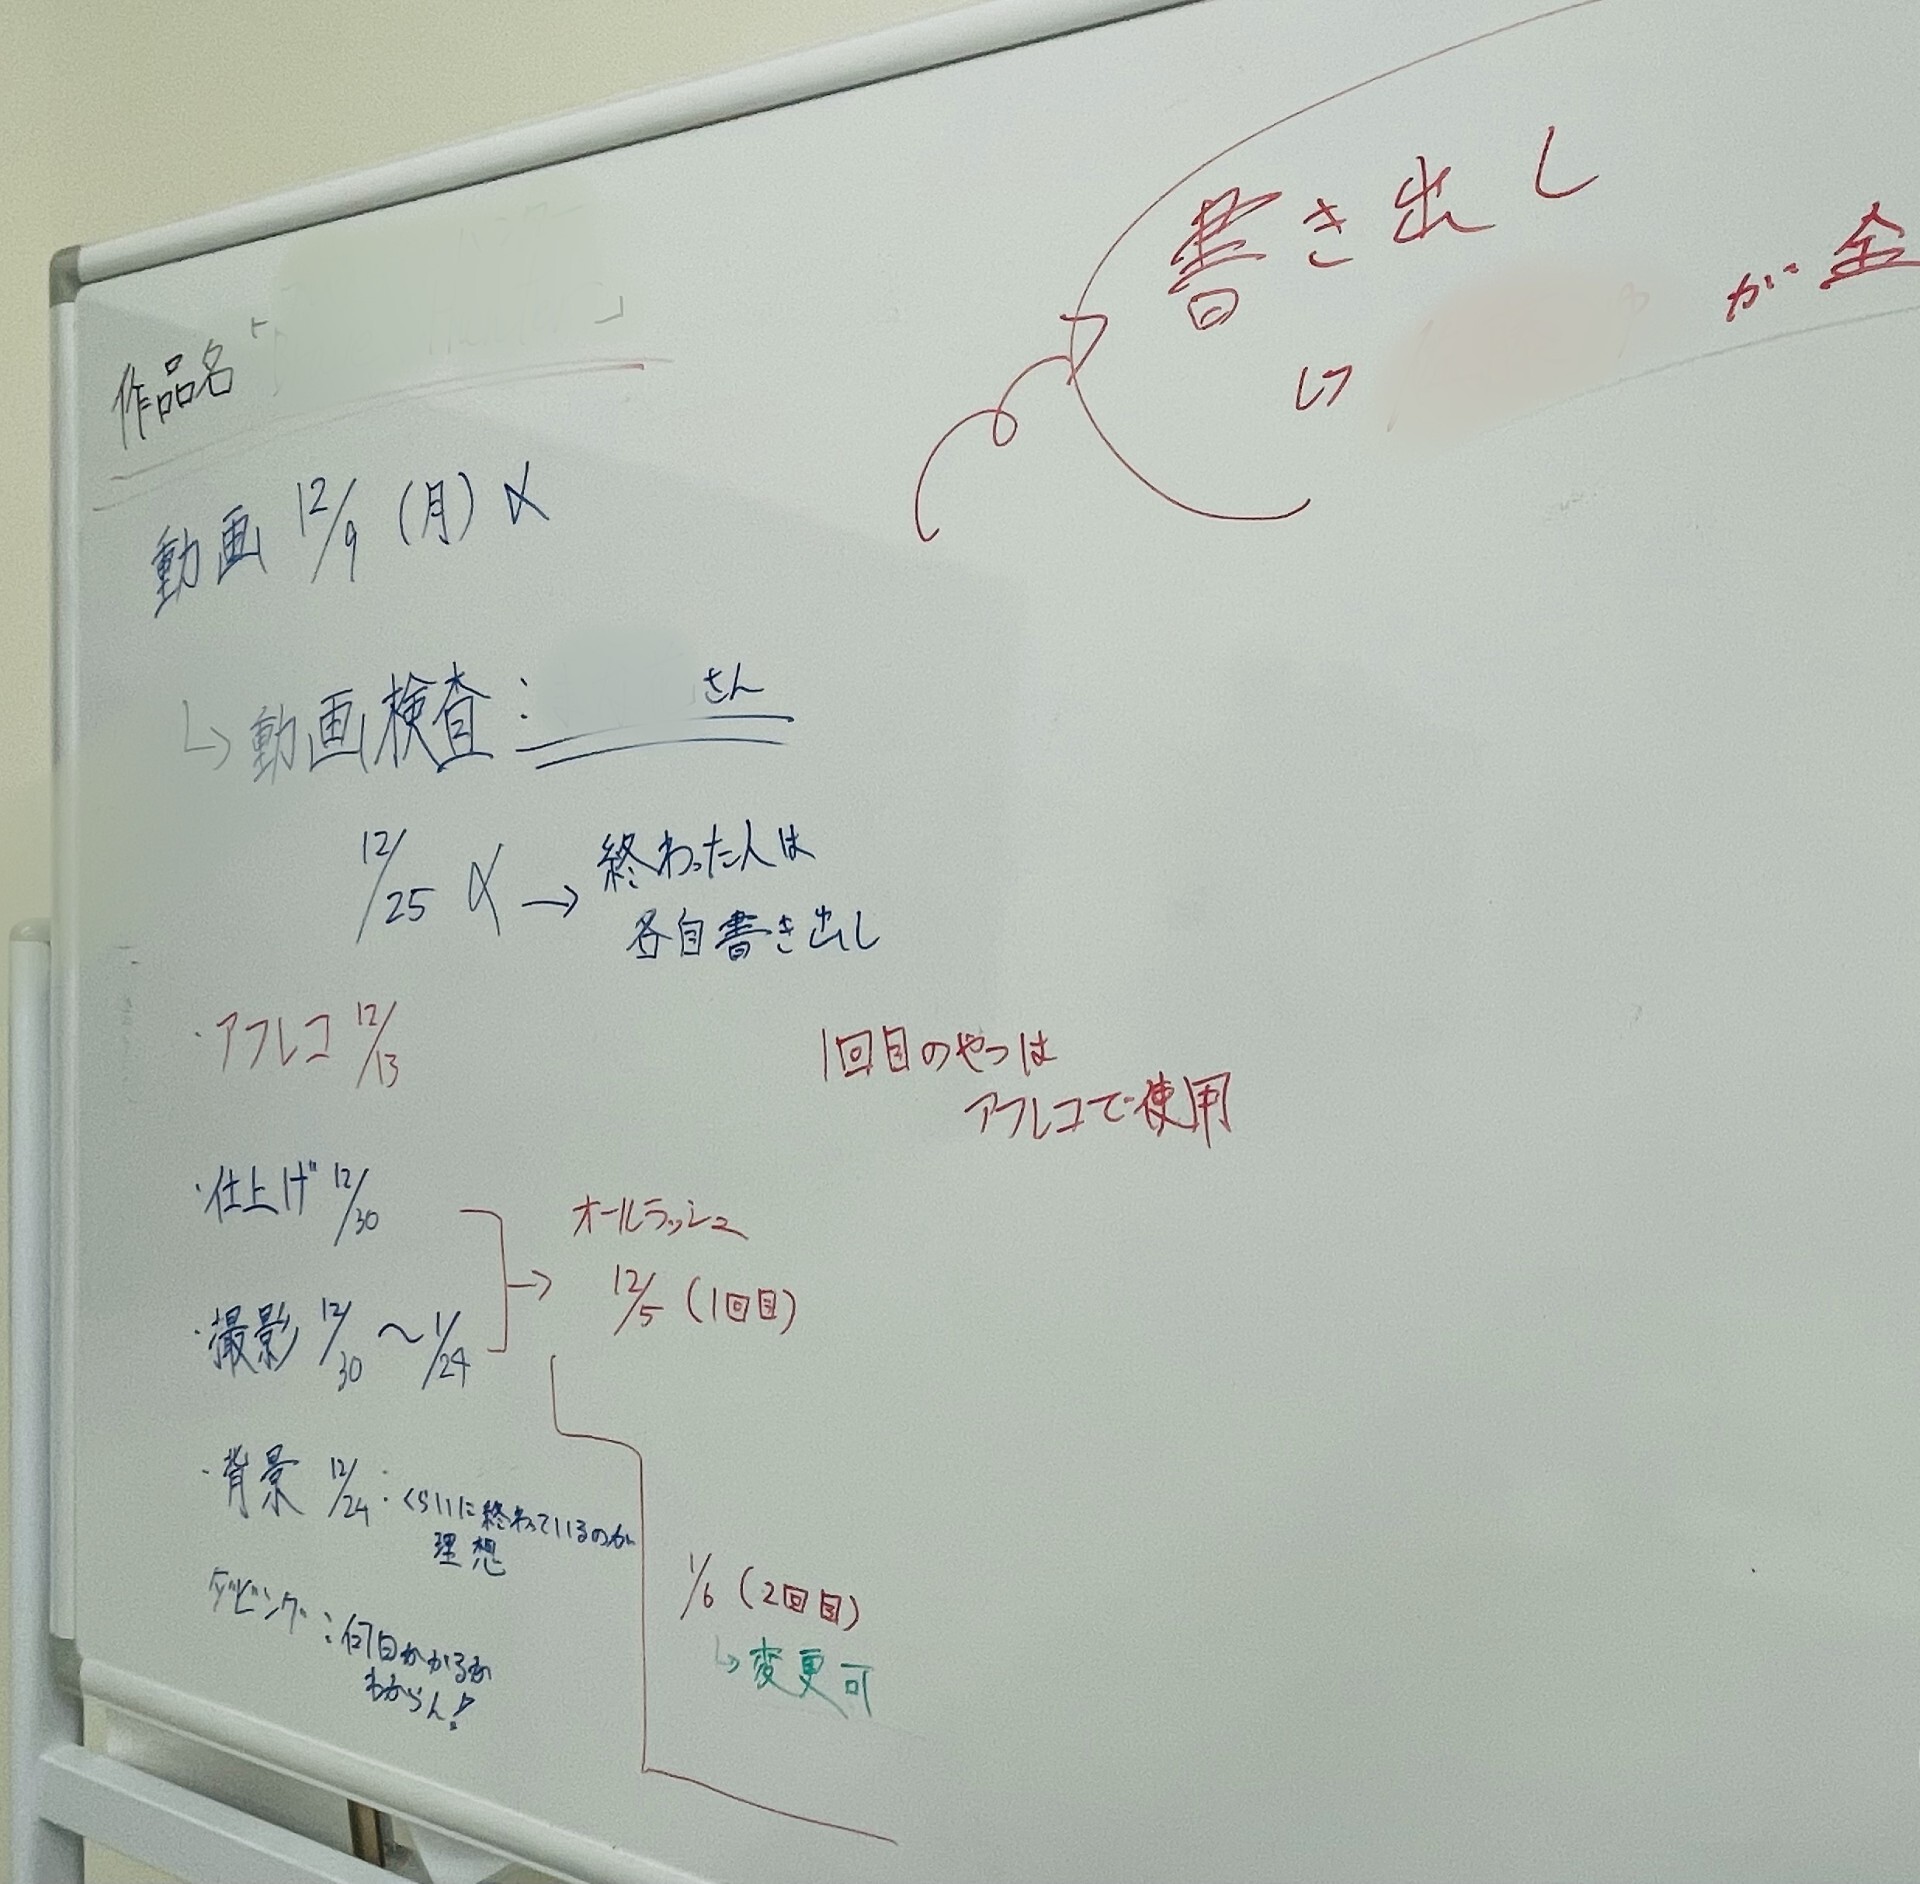 作品名「 」
動画 12/9 (月) 〆
↳ 動画検査: さん
12/25 〆 → 終わった人は
各自書き出し
・アフレコ 12/13
1回目のやつは
アフレコで使用
・仕上げ 12/30
・撮影 12/30 〜 1/24
→ オールラッシュ
12/5 (1回目)
・背景 12/24 : くらいに終わっているのが
理想
ダビング : 何日かかるか
わからん!
1/6 (2回目)
↳ 変更可
書き出し
↳ が全